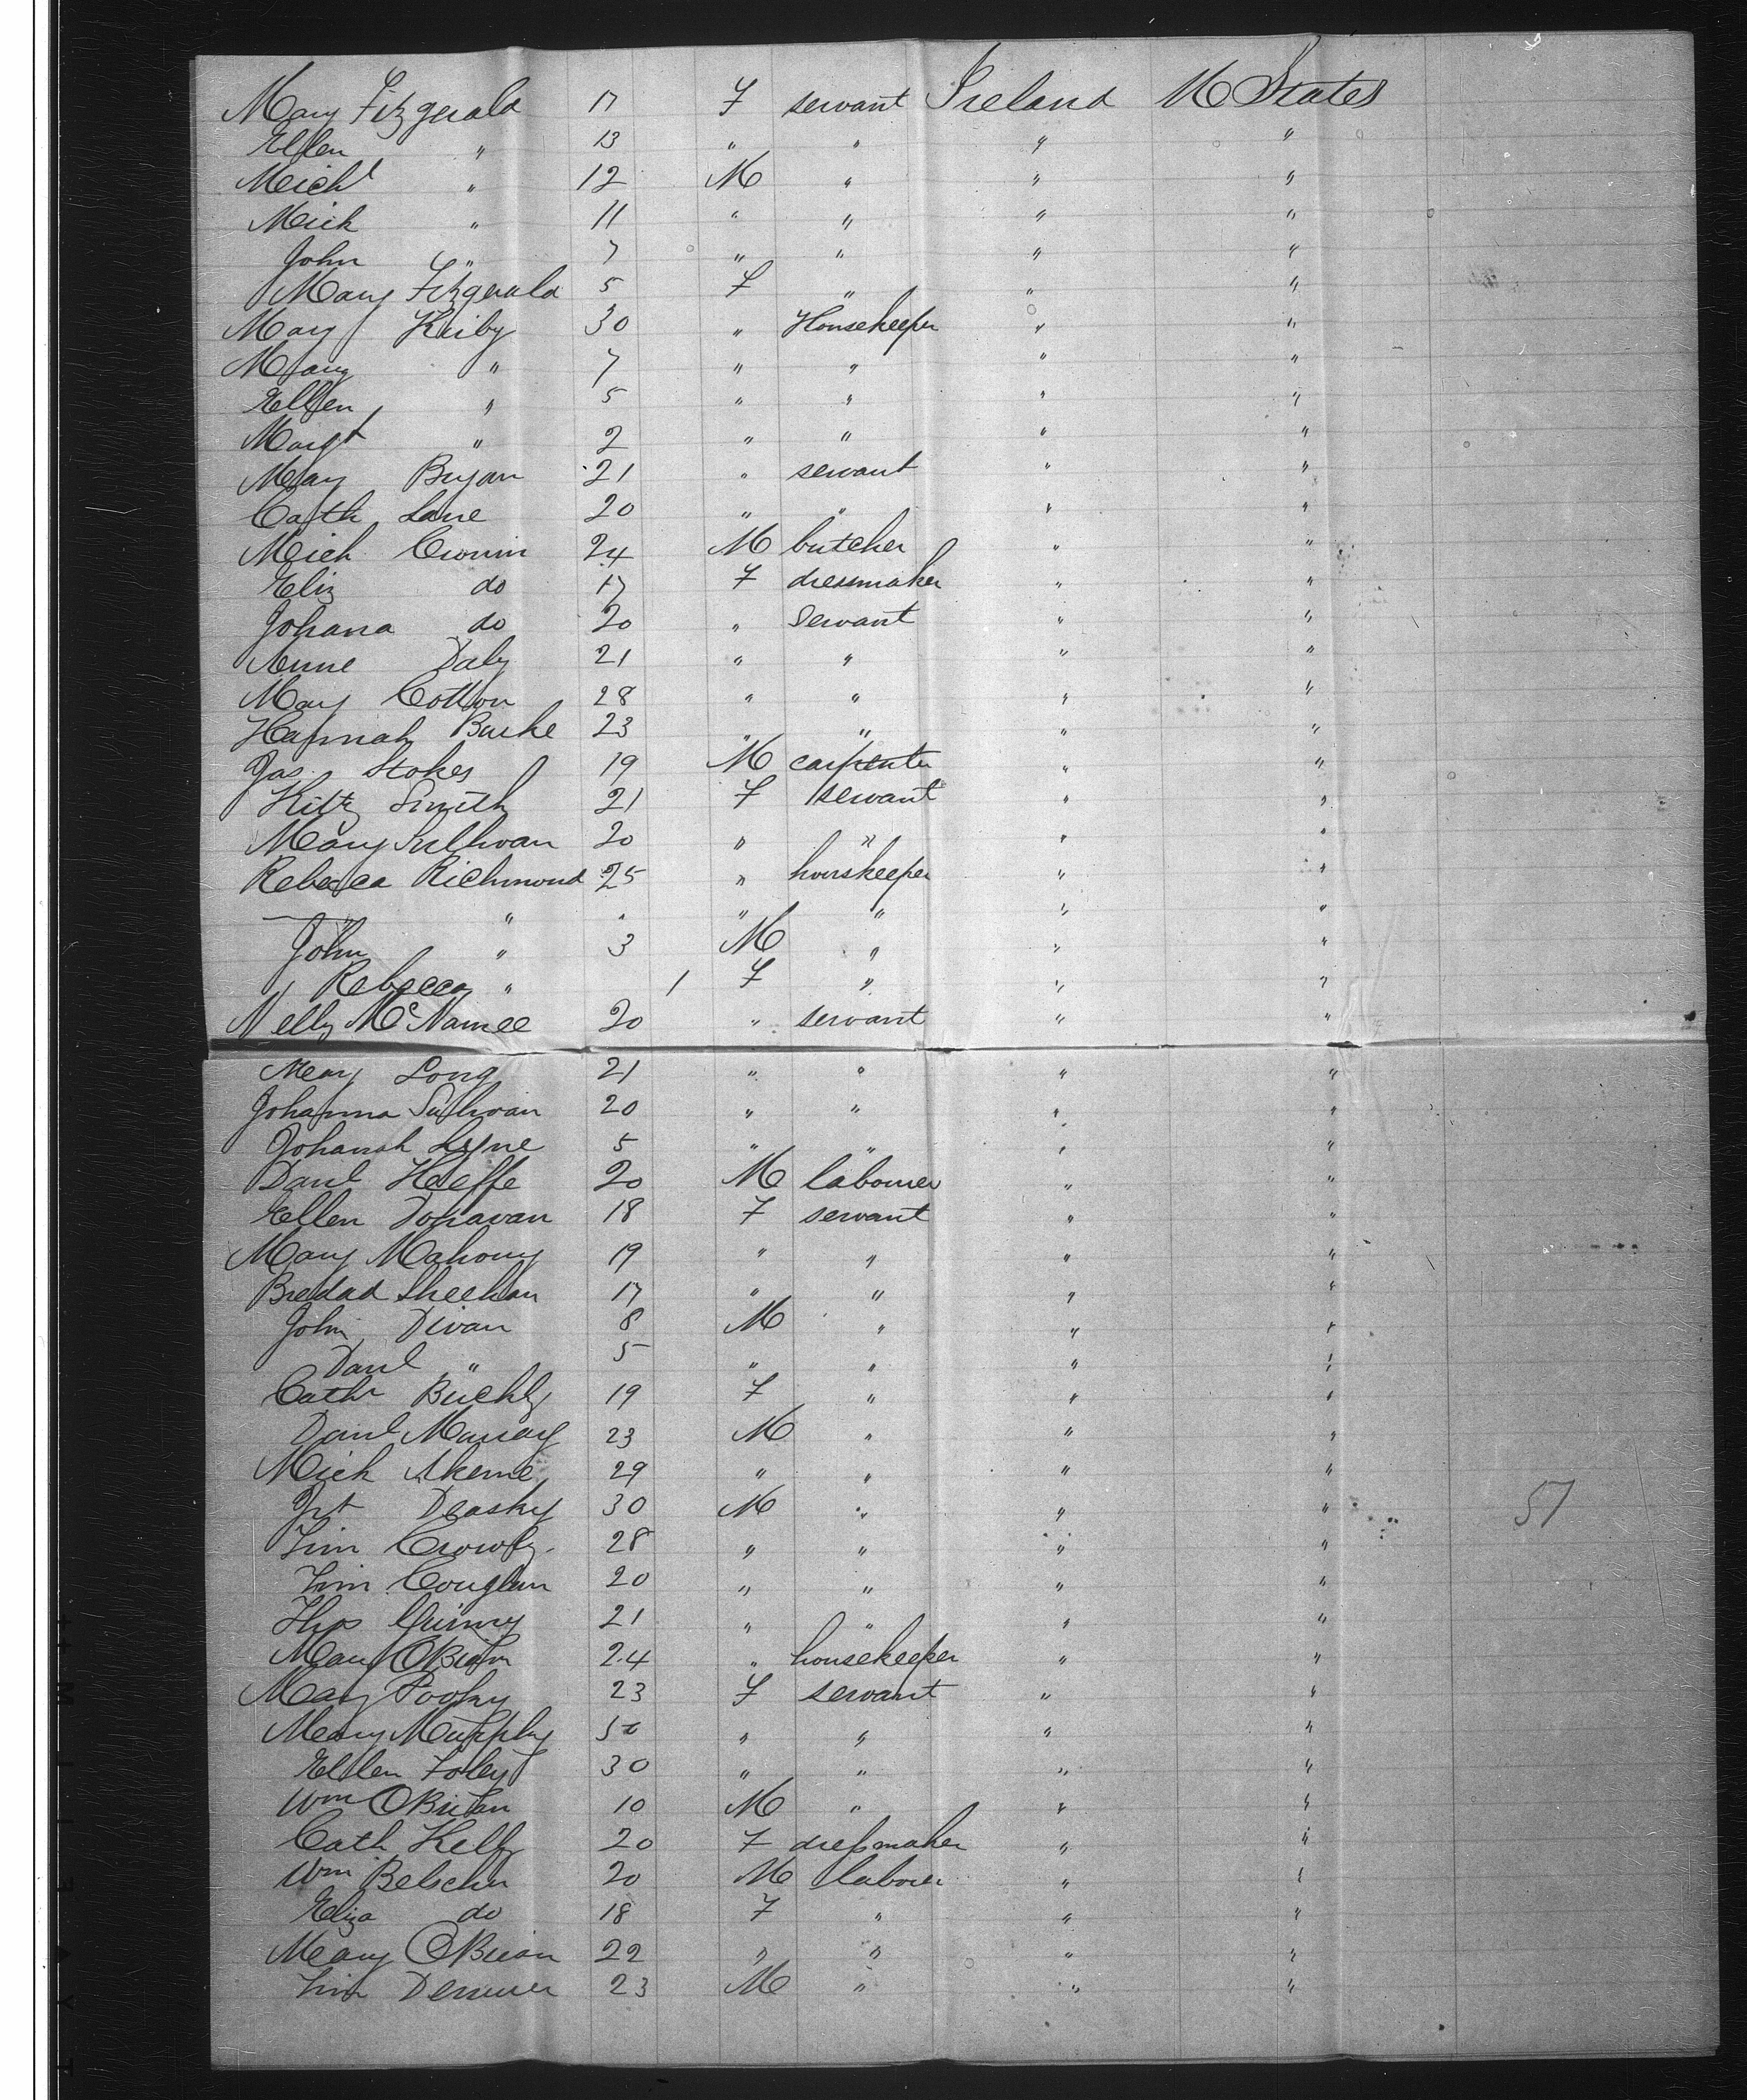 Mary Fitzgerald 17 F servant Ireland U States
Ellen " 13 " " " "
Michl " 12 M " " "
Mick " 11 " " " "
John " 7 " " " "
Mary Fitzgerald 5 F " " "
Mary Kirby 30 " Housekeeper " "
Mary " 7 " " " "
Ellen " 5 " " " "
Margt " 2 " " " "
Mary Bryan 21 " servant " "
Cath Lane 20 " " " "
Mich Cronin 24 M butcher " "
Eliz do 17 F dressmaker " "
Johana do 20 " Servant " "
Anne Daly 21 " " " "
Mary Cotton 28 " " " "
Hannah Burke 23 " " " "
Jas. Stokes 19 M carpenter " "
Kitty Smith 21 F servant " "
Mary Sullivan 20 " " " "
Rebecca Richmond 25 " houskeeper " "
— " " " " " "
John " 3 M " " "
Rebecca " 1 F " " "
Nelly McNamee 20 " servant " "
Mary Long 21 " " " "
Johanna Sullivan 20 " " " "
Johanah Lyne 5 " " " "
Danl Keeffe 20 M labourer " "
Ellen Donavan 18 F servant " "
Mary Mahony 19 " " " "
Sheehan 17 " " " "
John Divan 8 M " " "
Danl " 5 " " " "
Cath Buckly 19 F " " "
Danl Murray 23 M " " "
Mich Aherne 29 " " " "
Deasky 30 M " " " 51
Tim Crowly 28 " " " "
Tim Couglan 20 " " " "
Thos 21 " " " "
Mary OBrien 24 " housekeeper " "
Mary 23 F servant " "
Mary Murphy " " " "
Ellen Foley 30 " " " "
Wm OBrien 10 M " " "
Cath Kelly 20 F dressmaker " "
Wm Belscher 20 M laborer " "
Eliza do 18 F " " "
Mary OBrien 22 " " " "
Tim 23 M " " "